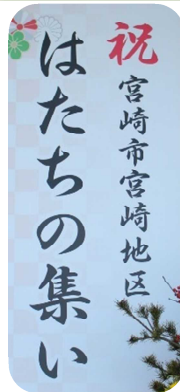 祝
宮崎市宮崎地区
はたちの集い